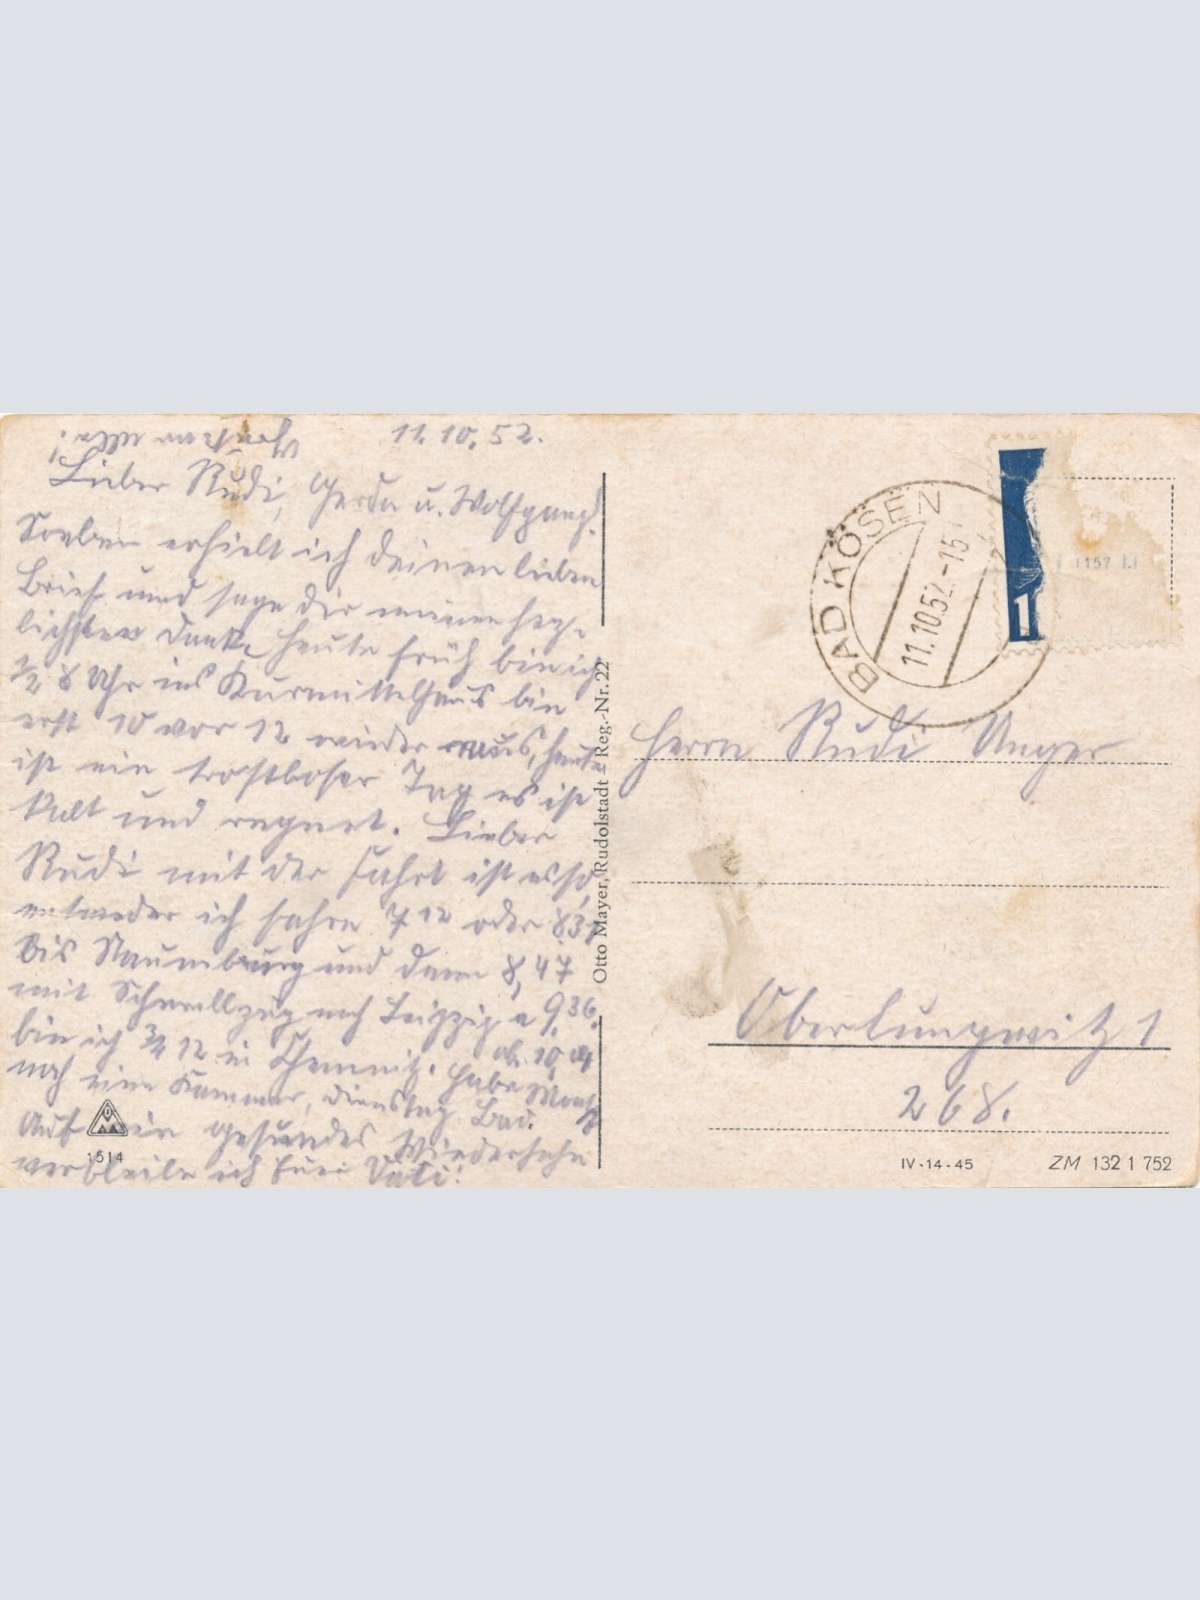 11.10.52.
Lieber Rudi, Gerda u. Wolfgang!
Soeben erhielt ich deinen lieben
Brief und sage dir meinen herz-
lichsten Dank. Heute früh bin ich
½ 8 Uhr ins Kurmittelhaus bin
erst 10 vor 12 wieder raus, heute
ist ein trostloser Tag es ist
kalt und regnet. Lieber
Rudi mit der Fahrt ist es so,
entweder ich fahre 7 12 oder 8,31
bis Naumburg und dann 8,47
mit Schnellzug nach Leipzig a 9 36.
bin ich ¾ 12 in Chemnitz. ab. 10,04
noch eine Kammer, Dienstag Bad. Habe Montg
Auf ein gesundes Wiedersehn
verbleibe ich Euer Vati!
BAD KÖSEN
11.10.52.-15
1
1157
Herrn Rudi Unger
Oberlungwitz 1
268.
Otto Mayer, Rudolstadt – Reg.-Nr. 22
1514
IV-14-45
ZM 132 1 752